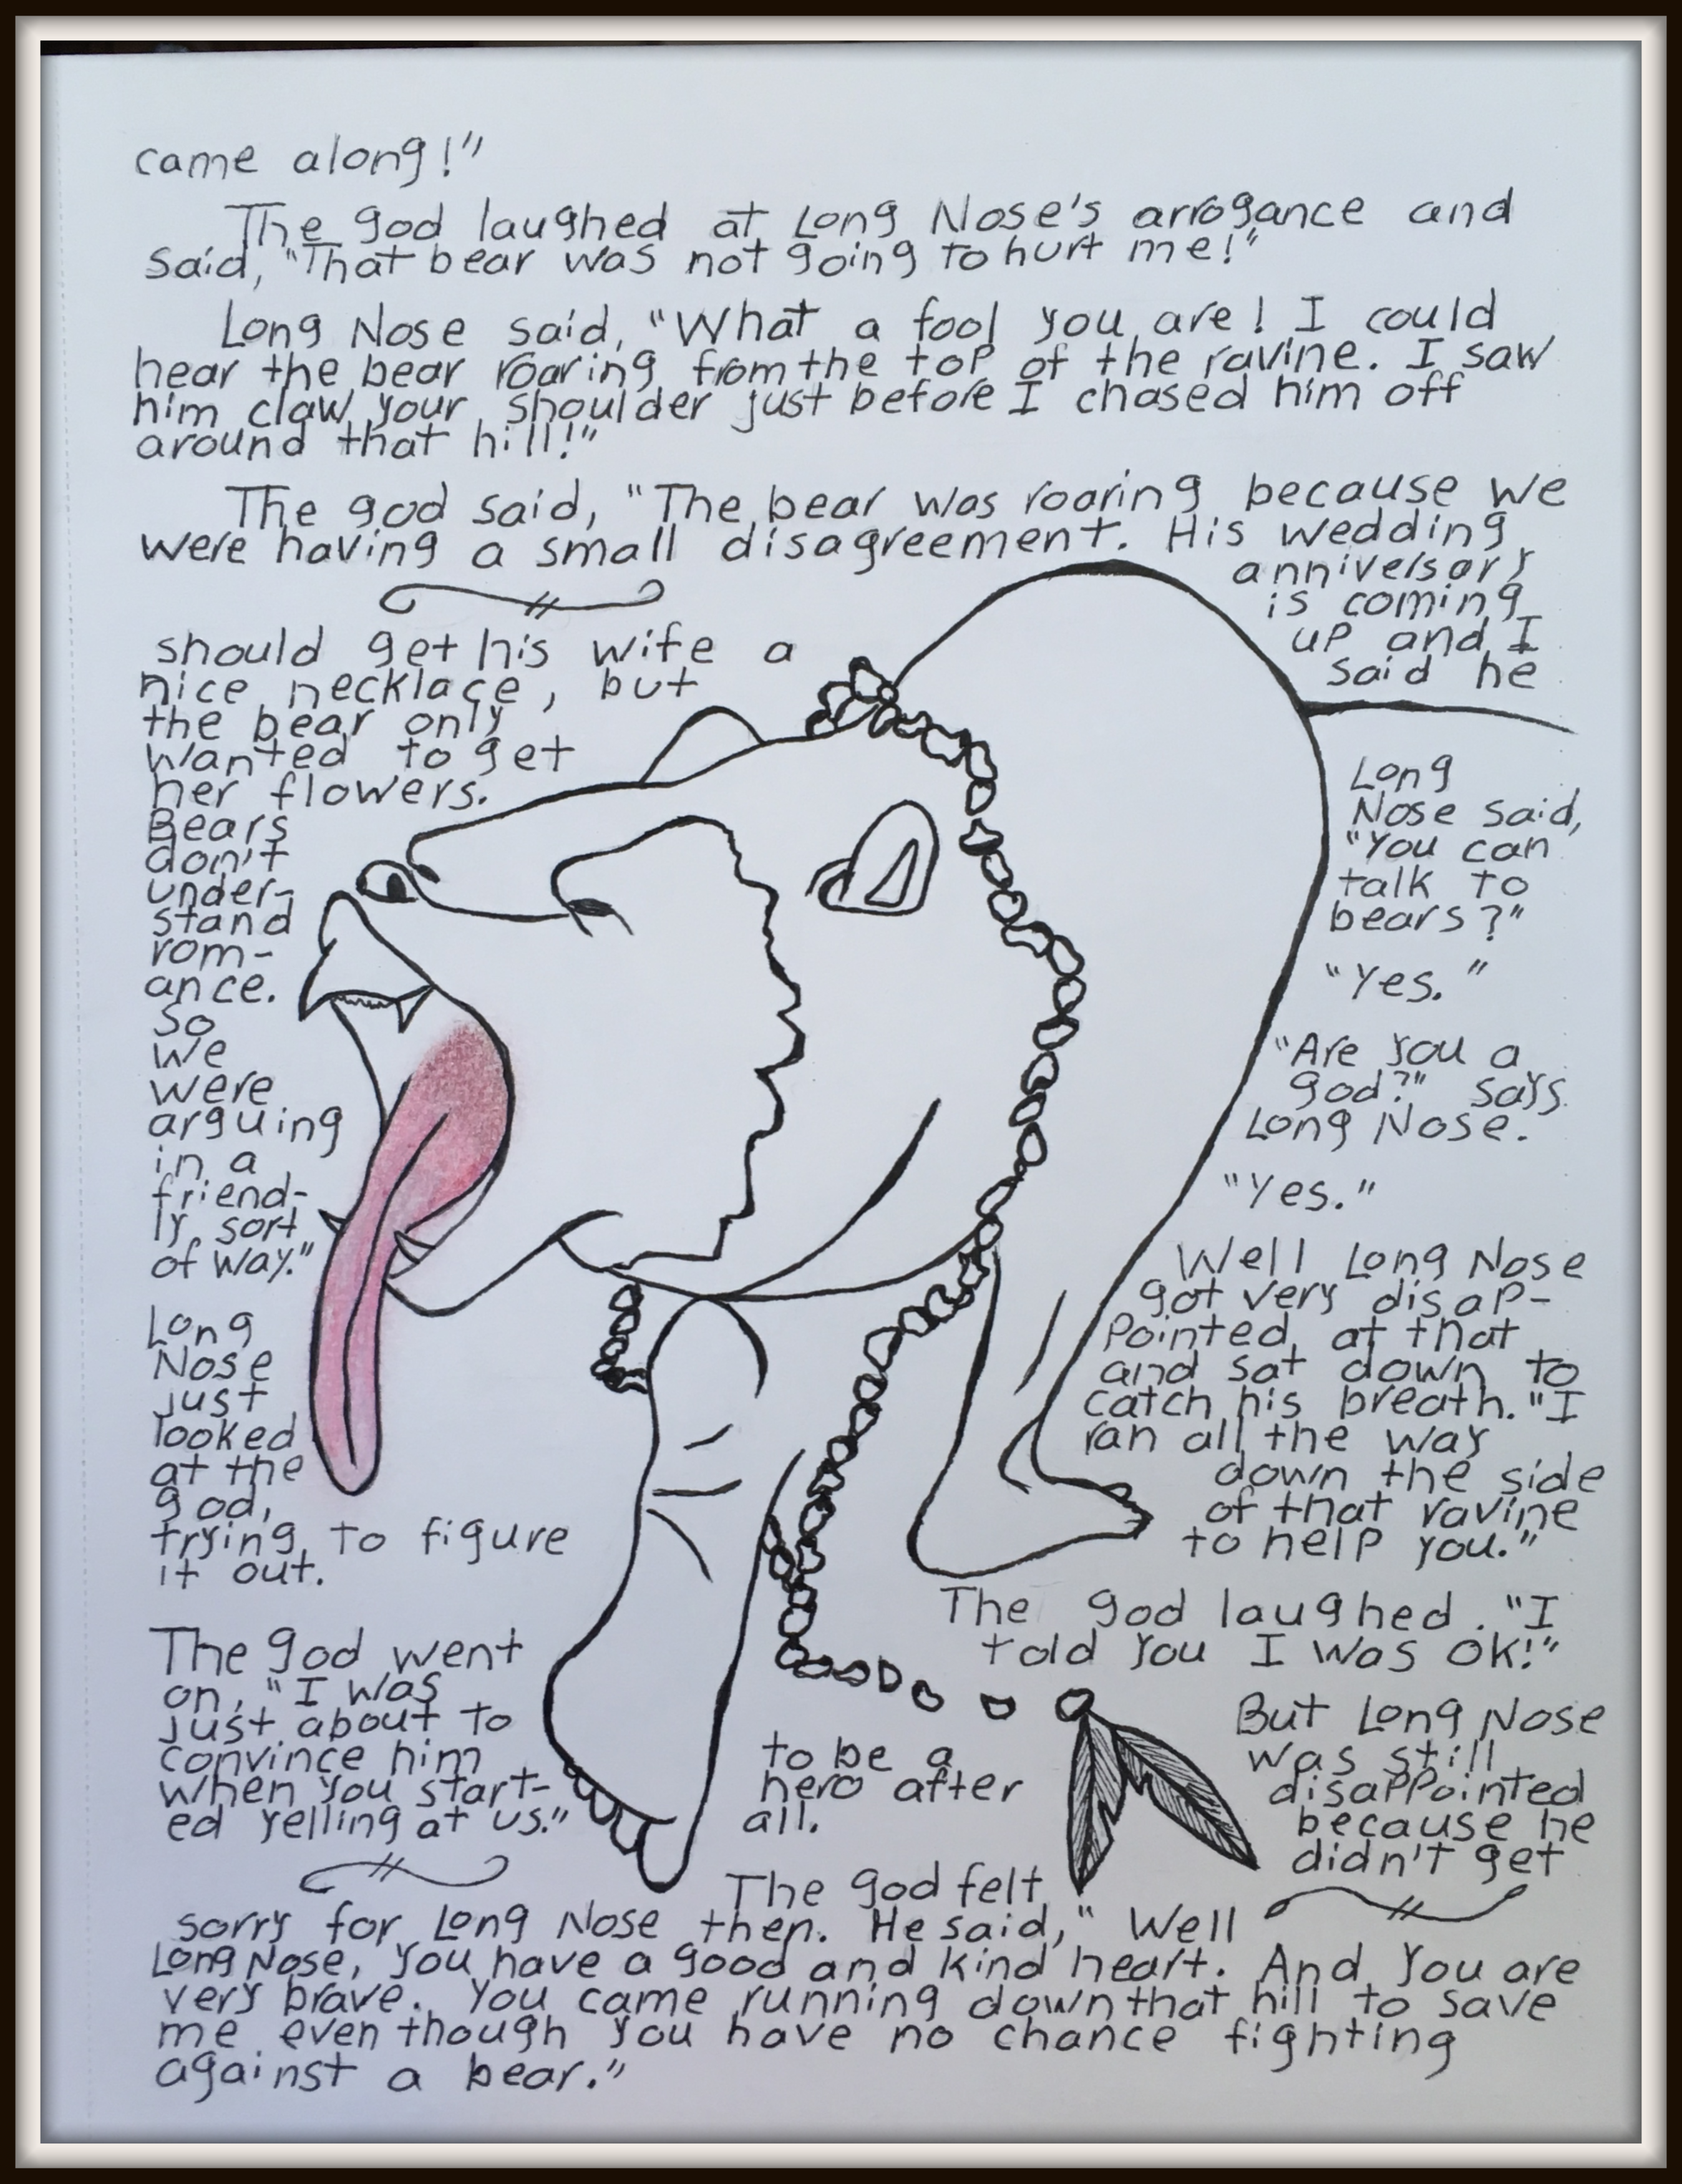 came along!"
The god laughed at Long Nose's arrogance and
said, "That bear was not going to hurt me!"
Long Nose said, "What a fool you are! I could
hear the bear roaring from the top of the ravine. I saw
him claw your shoulder just before I chased him off
around that hill!"
The god said, "The bear was roaring because we
were having a small disagreement. His wedding
anniversary
is coming
up and I
said he
should get his wife a
nice necklace, but
the bear only
wanted to get
her flowers.
Bears
don't
under-
stand
rom-
ance.
So
we
were
arguing
in a
friend-
ly sort
of way."
Long
Nose
just
looked
at the
god,
trying to figure
it out.
The god went
on, "I was
just about to
convince him
when you start-
ed yelling at us."
Long
Nose said,
"You can
talk to
bears?"
"Yes."
"Are you a
god?" says
Long Nose.
"Yes."
Well Long Nose
got very disap-
pointed at that
and sat down to
catch his breath. "I
ran all the way
down the side
of that ravine
to help you."
The god laughed. "I
told you I was ok!"
But Long Nose
was still
disappointed
because he
didn't get
to be a
hero after
all.
The god felt
sorry for Long Nose then. He said, "Well
Long Nose, you have a good and kind heart. And you are
very brave. You came running down that hill to save
me even though you have no chance fighting
against a bear."